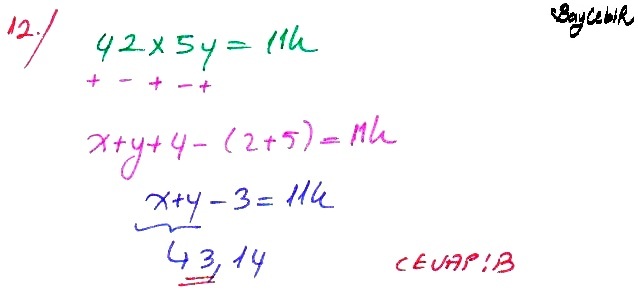 BayCebiR
12./ 42x5y = 11k
+ - + - +
x+y+4-(2+5)=11k
x+y-3=11k
↳ 3, 14
CEVAP: B